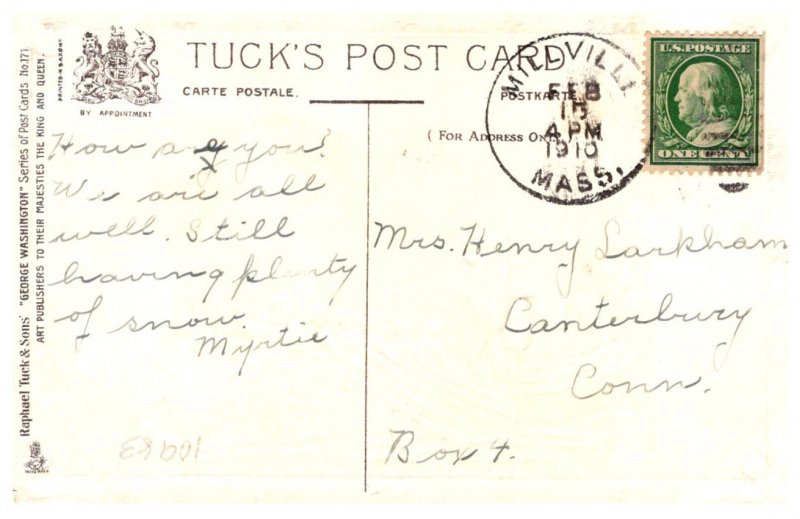 TUCK'S POST CARD
CARTE POSTALE.
POSTKARTE
(FOR ADDRESS ONLY
PRINTED IN SAXONY
BY APPOINTMENT
Raphael Tuck & Sons' "GEORGE WASHINGTON" Series of Post Cards No. 171
ART PUBLISHERS TO THEIR MAJESTIES THE KING AND QUEEN.
MILLVILLE
FEB
15
4 PM
1910
MASS.
U.S. POSTAGE
ONE CENT
How are you?
We are all
well. Still
having plenty
of snow.
Myrtie
Mrs. Henry Larkham
Canterbury
Conn.
Box 4.